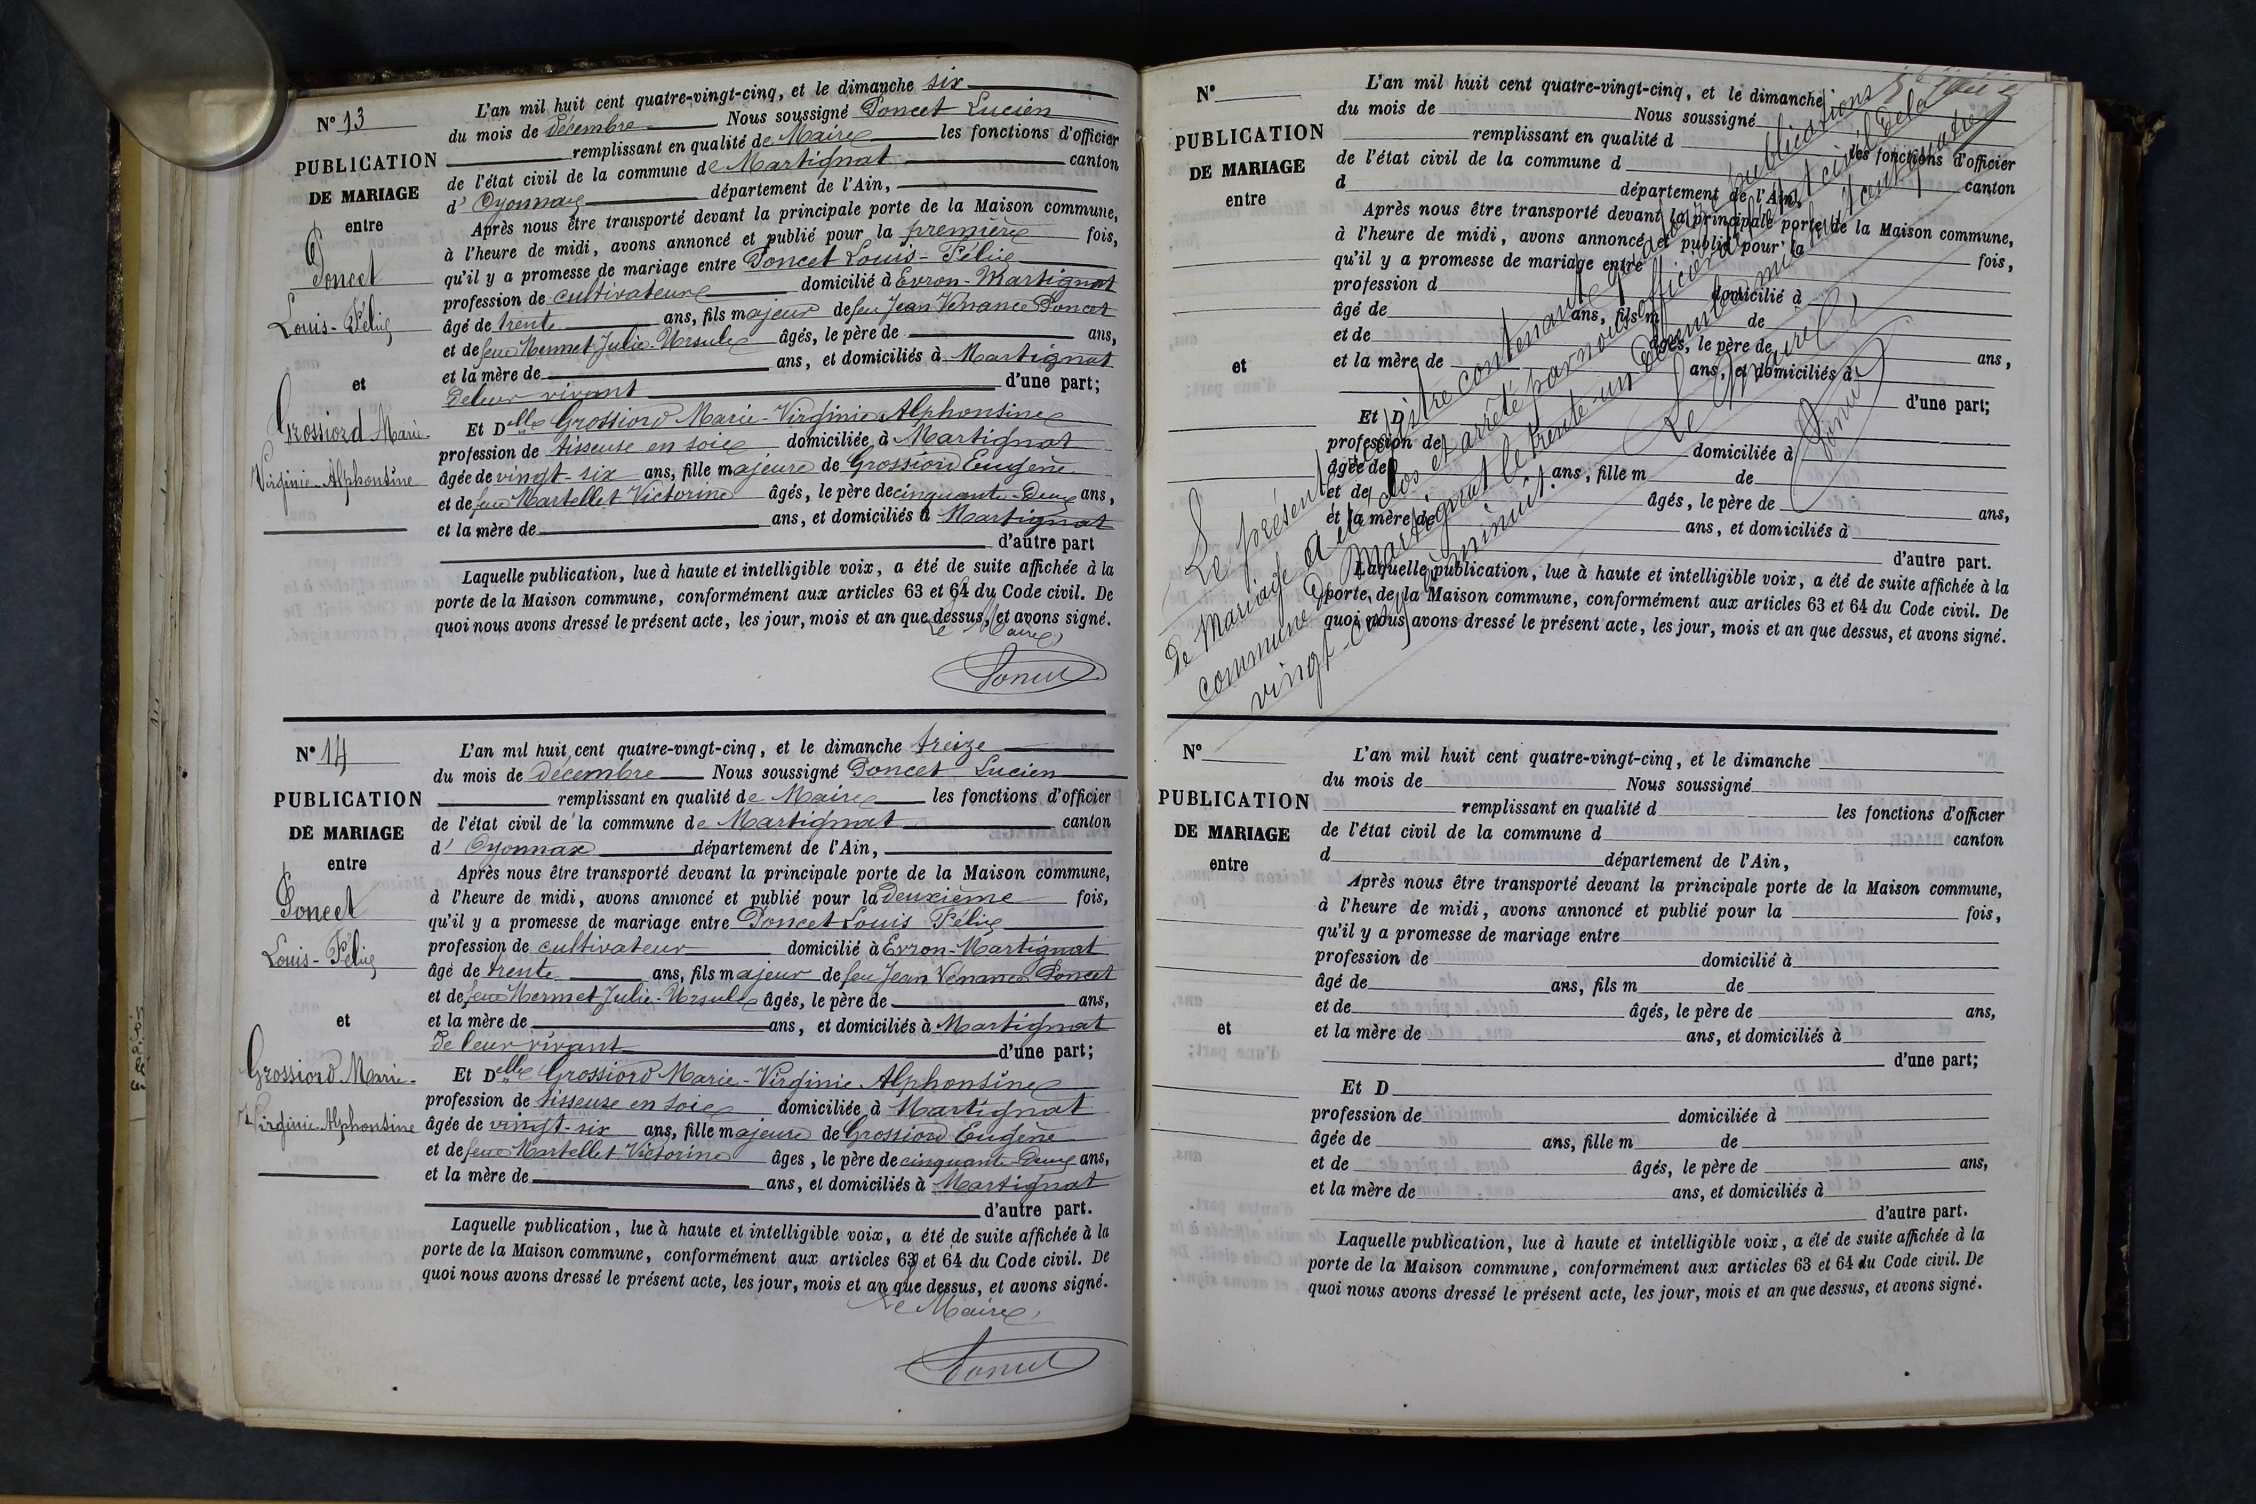 N° 13
PUBLICATION
DE MARIAGE
entre
Poncet
Louis-Félix
et
Grossiord Marie-
Virginie Alphonsine
L'an mil huit cent quatre-vingt-cinq, et le dimanche six
du mois de décembre Nous soussigné Poncet Lucien
remplissant en qualité de Maire les fonctions d'officier
de l'état civil de la commune de Martignat canton
d' Oyonnax département de l'Ain,
Après nous être transporté devant la principale porte de la Maison commune,
à l'heure de midi, avons annoncé et publié pour la première fois,
qu'il y a promesse de mariage entre Poncet Louis-Félix
profession de cultivateur domicilié à Evron-Martignat
âgé de trente ans, fils majeur de feu Jean Venance Poncet
et de feue Mermet Julie-Ursule âgés, le père de ans,
et la mère de ans, et domiciliés à Martignat
de leur vivant d'une part;
Et Delle Grossiord Marie-Virginie Alphonsine
profession de tisseuse en soie domiciliée à Martignat
âgée de vingt-six ans, fille majeure de Grossiord Eugène
et de feue Martellet Victorine âgés, le père de cinquante-deux ans,
et la mère de ans, et domiciliés à Martignat
d'autre part
Laquelle publication, lue à haute et intelligible voix, a été de suite affichée à la
porte de la Maison commune, conformément aux articles 63 et 64 du Code civil. De
quoi nous avons dressé le présent acte, les jour, mois et an que dessus, et avons signé.
Le Maire,
Poncet
N° 14
PUBLICATION
DE MARIAGE
entre
Poncet
Louis-Félix
et
Grossiord Marie-
Virginie Alphonsine
L'an mil huit cent quatre-vingt-cinq, et le dimanche treize
du mois de décembre Nous soussigné Poncet Lucien
remplissant en qualité de Maire les fonctions d'officier
de l'état civil de la commune de Martignat canton
d' Oyonnax département de l'Ain,
Après nous être transporté devant la principale porte de la Maison commune,
à l'heure de midi, avons annoncé et publié pour la deuxième fois,
qu'il y a promesse de mariage entre Poncet Louis Félix
profession de cultivateur domicilié à Evron-Martignat
âgé de trente ans, fils majeur de feu Jean Venance Poncet
et de feue Mermet Julie-Ursule âgés, le père de ans,
et la mère de ans, et domiciliés à Martignat
de leur vivant d'une part;
Et Delle Grossiord Marie-Virginie Alphonsine
profession de tisseuse en soie domiciliée à Martignat
âgée de vingt-six ans, fille majeure de Grossiord Eugène
et de feue Martellet Victorine âges, le père de cinquante-deux ans,
et la mère de ans, et domiciliés à Martignat
d'autre part.
Laquelle publication, lue à haute et intelligible voix, a été de suite affichée à la
porte de la Maison commune, conformément aux articles 63 et 64 du Code civil. De
quoi nous avons dressé le présent acte, les jour, mois et an que dessus, et avons signé.
Le Maire,
Poncet
N°
PUBLICATION
DE MARIAGE
entre
et
L'an mil huit cent quatre-vingt-cinq, et le dimanche
du mois de Nous soussigné
remplissant en qualité d les fonctions d'officier
de l'état civil de la commune d canton
d département de l'Ain,
Après nous être transporté devant la principale porte de la Maison commune,
à l'heure de midi, avons annoncé et publié pour la fois,
qu'il y a promesse de mariage entre
profession d domicilié à
âgé de ans, fils m de
et de âgés, le père de ans,
et la mère de ans, et domiciliés à
d'une part;
Et D
profession de domiciliée à
âgée de ans, fille m de
et de âgés, le père de ans,
et la mère de ans, et domiciliés à
d'autre part.
Laquelle publication, lue à haute et intelligible voix, a été de suite affichée à la
porte de la Maison commune, conformément aux articles 63 et 64 du Code civil. De
quoi nous avons dressé le présent acte, les jour, mois et an que dessus, et avons signé.
Le présent registre contenant quatorze publications
de mariage a été clos et arrêté par nous officier de l'état civil de la
commune de Martignat le trente-un décembre mil huit cent quatre
vingt-cinq à minuit.
Le Maire,
Poncet
N°
PUBLICATION
DE MARIAGE
entre
et
L'an mil huit cent quatre-vingt-cinq, et le dimanche
du mois de Nous soussigné
remplissant en qualité d les fonctions d'officier
de l'état civil de la commune d canton
d département de l'Ain,
Après nous être transporté devant la principale porte de la Maison commune,
à l'heure de midi, avons annoncé et publié pour la fois,
qu'il y a promesse de mariage entre
profession de domicilié à
âgé de ans, fils m de
et de âgés, le père de ans,
et la mère de ans, et domiciliés à
d'une part;
Et D
profession de domiciliée à
âgée de ans, fille m de
et de âgés, le père de ans,
et la mère de ans, et domiciliés à
d'autre part.
Laquelle publication, lue à haute et intelligible voix, a été de suite affichée à la
porte de la Maison commune, conformément aux articles 63 et 64 du Code civil. De
quoi nous avons dressé le présent acte, les jour, mois et an que dessus, et avons signé.